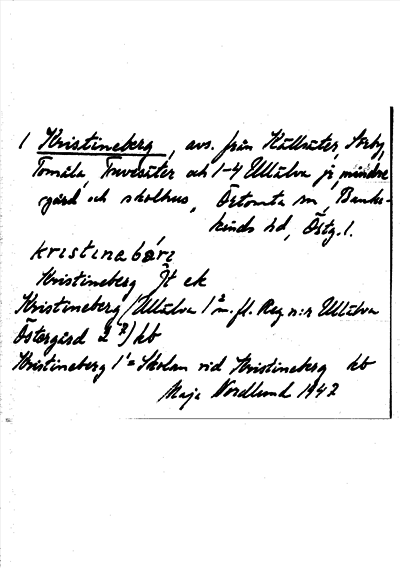 1 Kristineberg, avs. från Källsäter, Storby,
Tomåla, Tuvesäter och 1-4 Ullälva je, mindre
gård och skolhus, Örtomta sn, Banke-
kinds hd, Östg. l.
kristinabärj
Kristineberg Jt ek
Kristineberg (Ullälva 1² m. fl. Reg n:r Ullälva
Östergård 2³) kb
Kristineberg 1¹ = Skolan vid Kristineberg kb
Maja Nordlund 1942